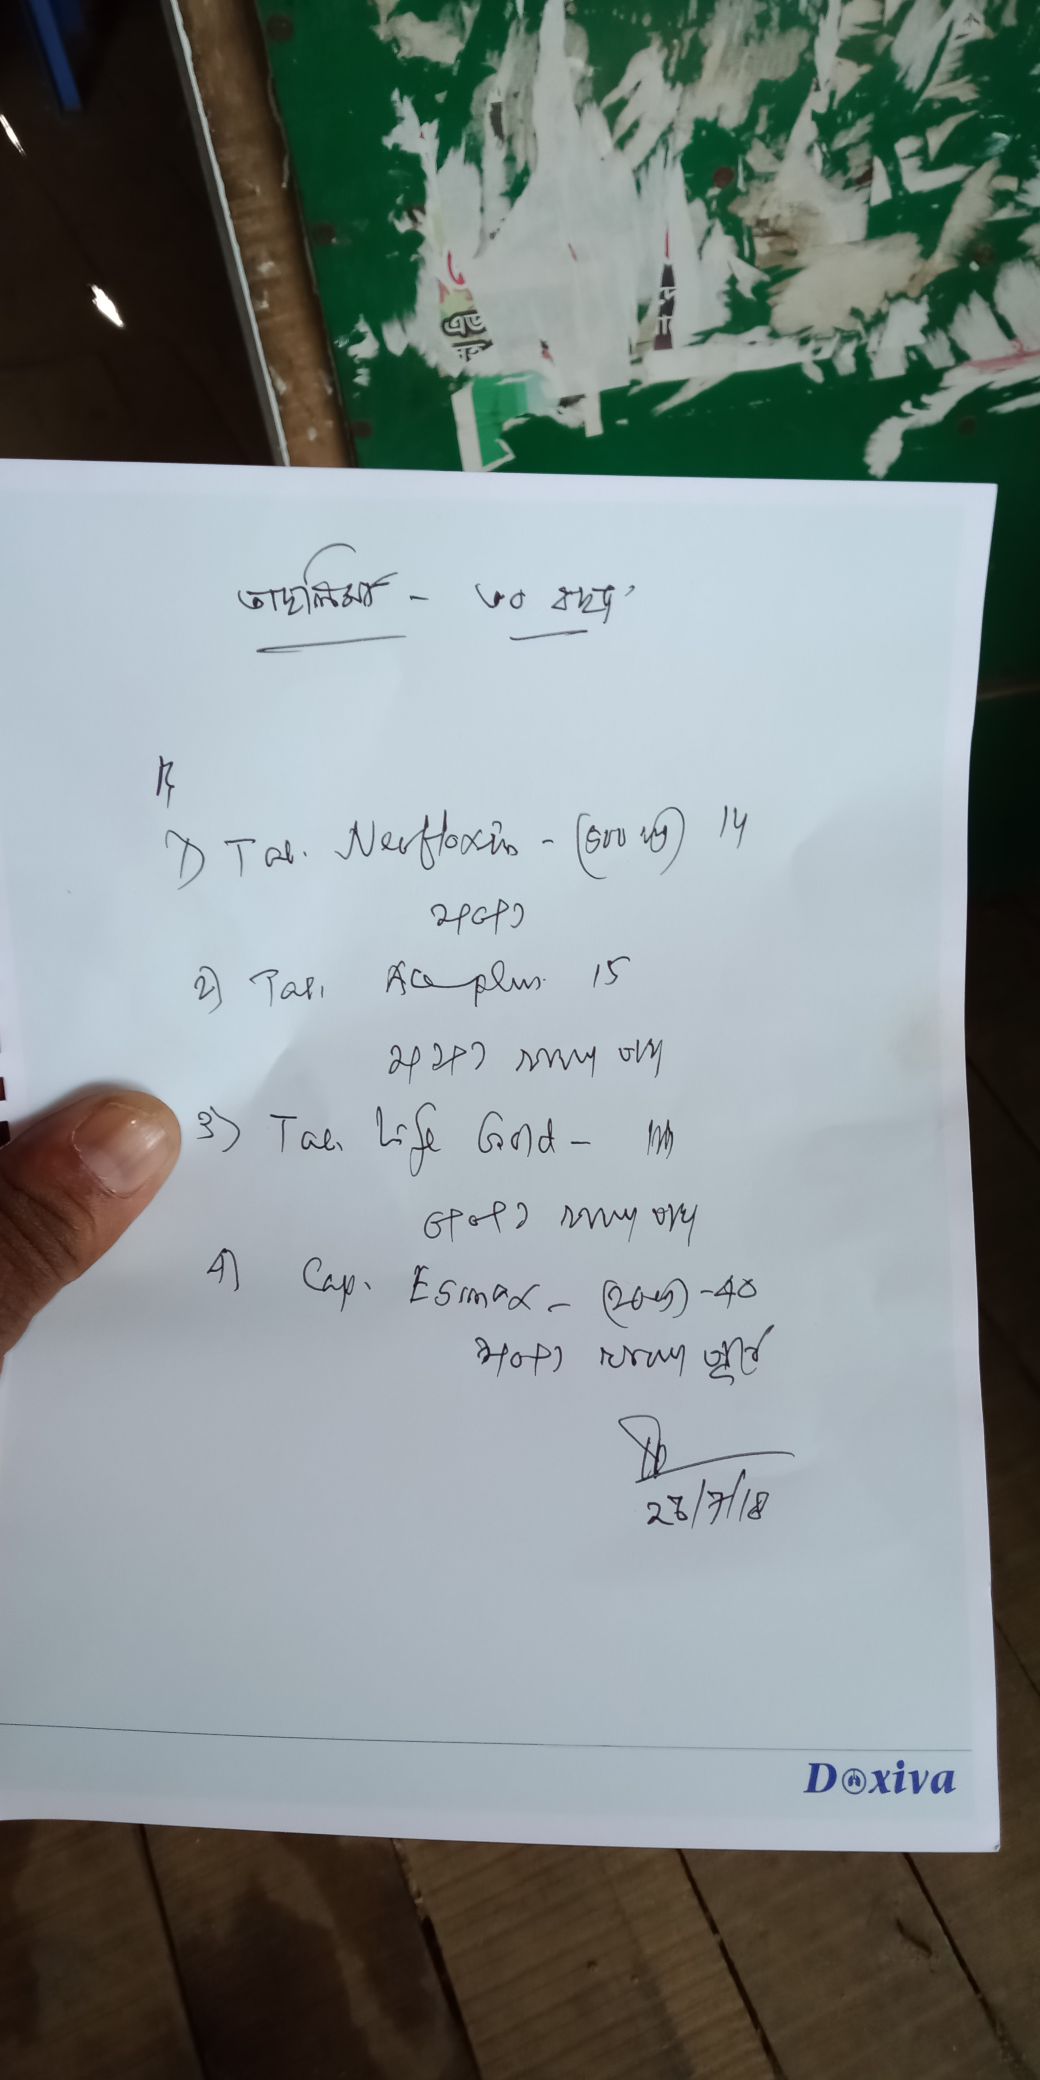 এড
তাছলিমা - ৩০ বছর
1) Tab. Neofloxin - (500 mg) 14
১+০+১
2) Tab. Ace plus 15
১+১+১ খাবার পর
3) Tab. Life Gold -
০+০+১ খাবার পর
4) Cap. Esmax - (20mg) - 40
১+০+১ খাবার পূর্বে
/7/18
Doxiva